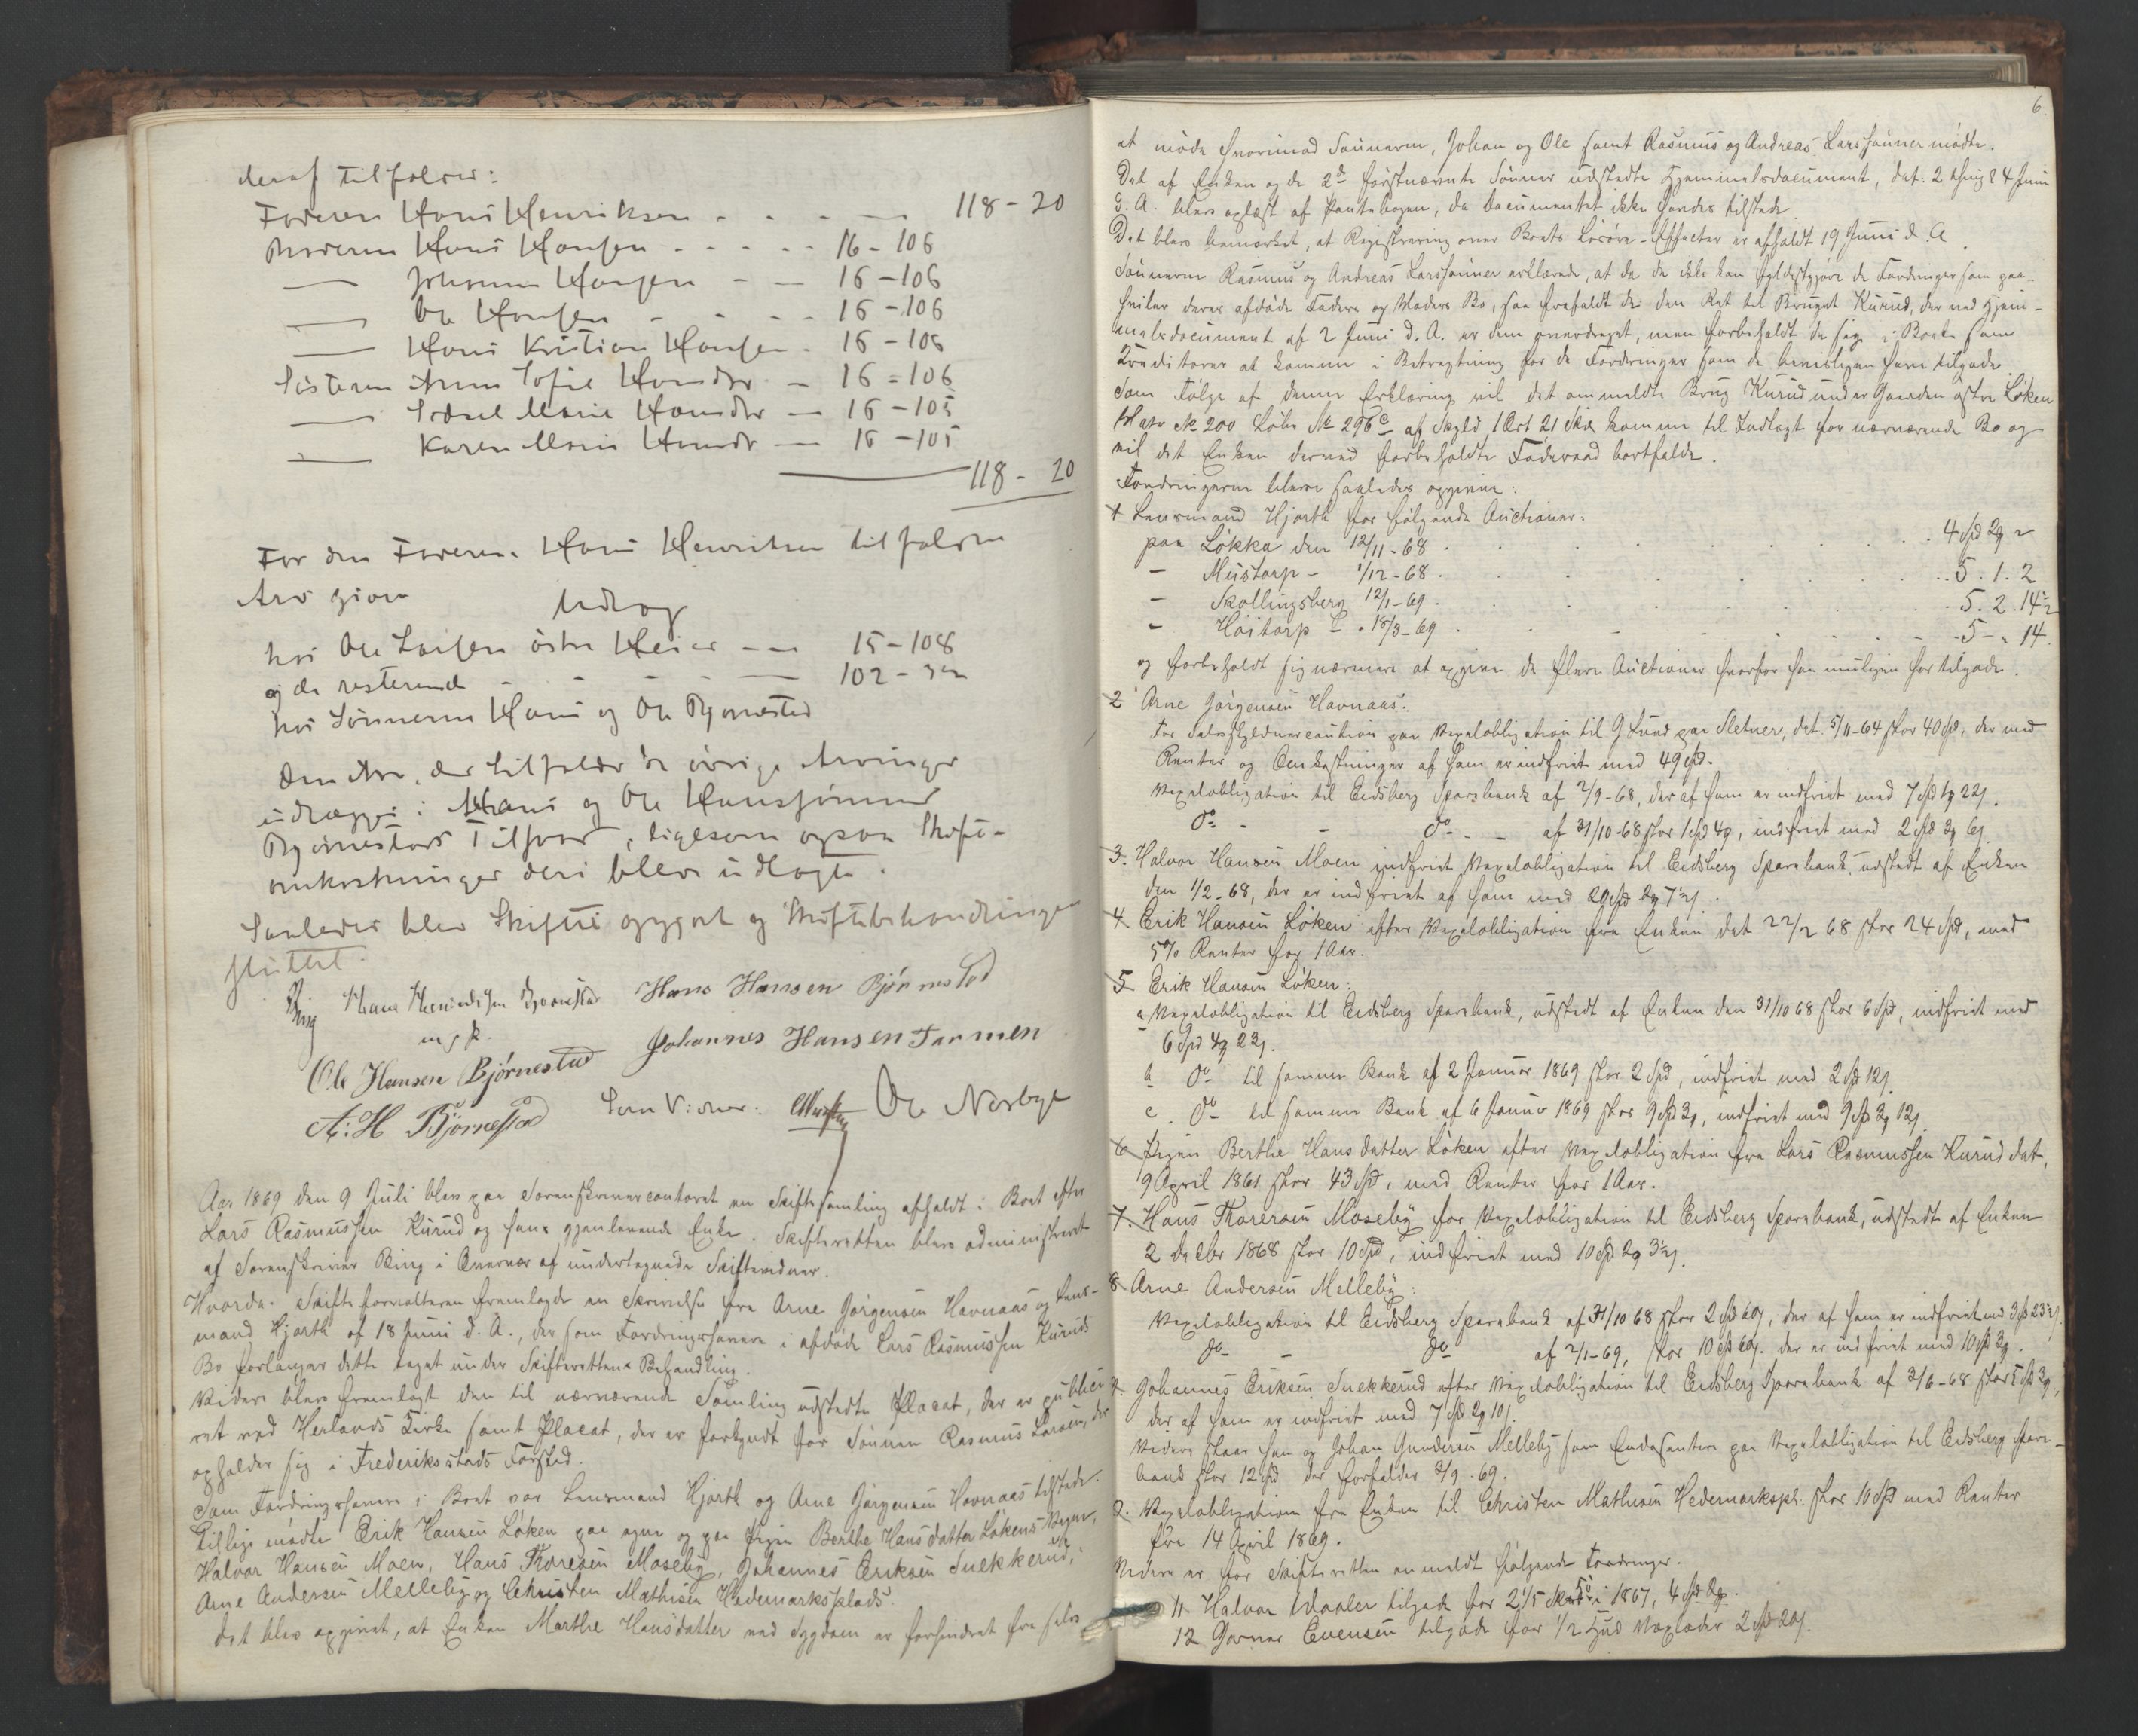 deraf tilfalder:
Faderen Hans Henriksen - - - - 118 - 20
Broderen Hans Hansen - - - - - 16 - 106
— Johannes Hansen - - 16 - 106
— Ole Hansen - - - - 16 - 106
— Hans Kristian Hansen - 16 - 106
Søsteren Anne Sofie Hansdtr - 16 - 106
— Maria Hansdtr - 16 - 105
— Karen Maria Hansdtr - 16 - 105
118 - 20
For den Faderen Hans Henriksen tilfaldne
Arv gives Udlæg
hos Ole Larsen østre Heier - - - 15 - 108
og de resterende - - - - 102 - 32
hos Sønnerne Hans og Ole Bjørnestad
Den Arv, der tilfalder de øvrige Arvinger
udlægges i Hans og Ole Hanssønner
Bjørnestads Tilsvar, ligesom ogsaa Skifte-
omkostninger deri blev udlagte.
Saaledes blev Skiftet opgjort og Skiftebehandlingen
sluttet.
Bing Hans Henriksen Bjørnestad Hans Hansen Bjørnestad
m. p. P.
Ole Hansen Bjørnestad Johannes Hansen Tarmen
A. H. Bjørnestad Som Vidner: Ole Norbye
Aar 1869 den 9 Juli blev paa Sorenskrivercontoret en Skiftesamling afholdt i Boet efter
Lars Rasmussen Kurud og hans gjenlevende Enke. Skifteretten blev administreret
af Sorenskriver Bing i Overvær af undertegnede Skiftevidner.
Hvorda: Skifteforvalteren fremlagde en Skrivelse fra Arne Jørgensen Havnaas og Lens-
mand Hjorth af 18 Juni d. A., der som Fordringshavere i afdøde Lars Rasmussen Kuruds
Bo forlanger dette taget under Skifterettens Behandling.
Videre blev fremlagt den til nærværende Samling udstedte Placat, der er publice-
ret ved Herlands Kirke samt Placat, der er forkyndt for Sønnen Rasmus Larsen, der
opholder sig i Frederiksstads Forstad.
Som Fordringshavere i Boet var Lensmand Hjorth og Arne Jørgensen Havnaas tilstede.
Tillige mødte Erik Hansen Løken paa egne og paa Pigen Berthe Hansdatter Løkens Vegne,
Halvor Hansen Moen, Hans Thoresen Moseby, Johannes Eriksen Snekkerud,
Arne Andersen Melleby og Christen Mathisen Hedemarksplads.
Det blev opgivet, at Enken Marthe Hansdatter ved Sygdom er forhindret fra selv
6.
at møde hvorimod Sønnerne, Johan og Ole samt Rasmus og Andreas Larssønner mødte.
Det af Enken og de 2de førstnævnte Sønner udstedte Hjemmelsdocument, dat. 2 thingl. 4 Juni
d. A. blev oplæst af Pantebogen, da Documentet ikke havdes tilstede.
Det blev bemærket, at Registrering over Boets Løsøre-Effecter er afholdt 19 Juni d. A.
Sønnerne Rasmus og Andreas Larssønner erklærede, at da de ikke kan fyldestgjøre de Fordringer som paa-
hviler deres afdøde Faders og Moders Bo, saa frafaldt de den Ret til Bruget Kurud, der ved Hjem-
melsdocument af 2 Juni d. A. er dem overdraget, men forbeholdt de sig i Boet som
Creditorer at komme i Betragtning for de Fordringer som de bevisligen have tilgode.
Som Følge af denne Erklæring vil det ommeldte Brug Kurud under Gaarden østre Løken
Matr No 200 Løbe No 296c af Skyld 1 Ort 21 Sk. komme til Indtægt for nærværende Bo og
vil det Enken derved forbeholdte Føderaad bortfalde.
Fordringerne bleve saaledes opgivne:
1 Lensmand Hjorth for følgende Auctioner:
paa Løkka den 12/11-68 . . . . . . 4 Spd 2 "
- Mustorp - 1/12-68 . . . . . . 5. 1. 2
- Skollingsberg 12/1-69 . . . . . . 5. 2. 14½
- Høitorp - 18/3-69 . . . . . . 5 - " 14.
og forbeholdt sig nærmere at opgive de flere Auctioner hvorfor han muligen har tilgode.
2 Arne Jørgensen Havnaas:
For Selvskyldnercaution paa Vexelobligation til G Lund paa Sletner, dat. 5/11-64 stor 40 Spd, der med
Renter og Omkostninger af ham er indfriet med 49 Spd.
Vexelobligation til Eidsberg Sparebank af 2/9-68, der af ham er indfriet med 7 Spd 1 22.
do - - do - - af 31/10-68 stor 1 Spd 4, indfriet med 2 Spd 3 6
3. Halvor Hansen Moen indfriet Vexelobligation til Eidsberg Sparebank, udstedt af Enken
den 1/2-68, der er indfriet af ham med 29 Spd 2 7½.
4. Erik Hansen Løken efter Vexelobligation fra Enken dat 22/2 68 stor 24 Spd, med
5% Renter for 1 Aar.
5 Erik Hansen Løken:
a Vexelobligation til Eidsberg Sparebank, udstedt af Enken den 31/10 68 stor 6 Spd, indfriet med
6 Spd 4 22.
b do til samme Bank af 2 Januar 1869 stor 2 Spd, indfriet med 2 Spd 12
c. do til samme Bank af 6 Januar 1869 stor 9 Spd 3, indfriet med 9 Spd 3 12
6 Pigen Berthe Hansdatter Løken efter Vexelobligation fra Lars Rasmussen Kurud dat.
9 April 1861 stor 43 Spd, med Renter for 1 Aar.
7. Hans Thoresen Moseby for Vexelobligation til Eidsberg Sparebank, udstedt af Enken
2 Decbr 1868 stor 10 Spd, indfriet med 10 Spd 2 3½.
8 Arne Andersen Melleby:
Vexelobligation til Eidsberg Sparebank af 31/10 68 stor 2 Spd 60, der af ham er indfriet med 3 Spd 23½
do - do af 2/1-69, stor 10 Spd 60. der er indfriet med 10 Spd 3.
9. Johannes Eriksen Snekkerud efter Vexelobligation til Eidsberg Sparebank af 3/6-68 stor 5 Spd 3,
der af ham er indfriet med 7 Spd 2 10.
Videre staar han og Johan Gundersen Melleby som Endosenter paa Vexelobligation til Eidsberg Spare-
bank stor 12 Spd der forfalder 3/9-69.
Vexelobligation fra Enken til Christen Mathisen Hedemarkspl. stor 10 Spd med Renter
fra 14 April 1869.
Videre er for Skifteretten anmeldt følgende Fordringer.
11 Halvor tilgode for i 1867, 4 Spd
12 Gunnar Evensen tilgode for 1/2 Hud 2 Spd